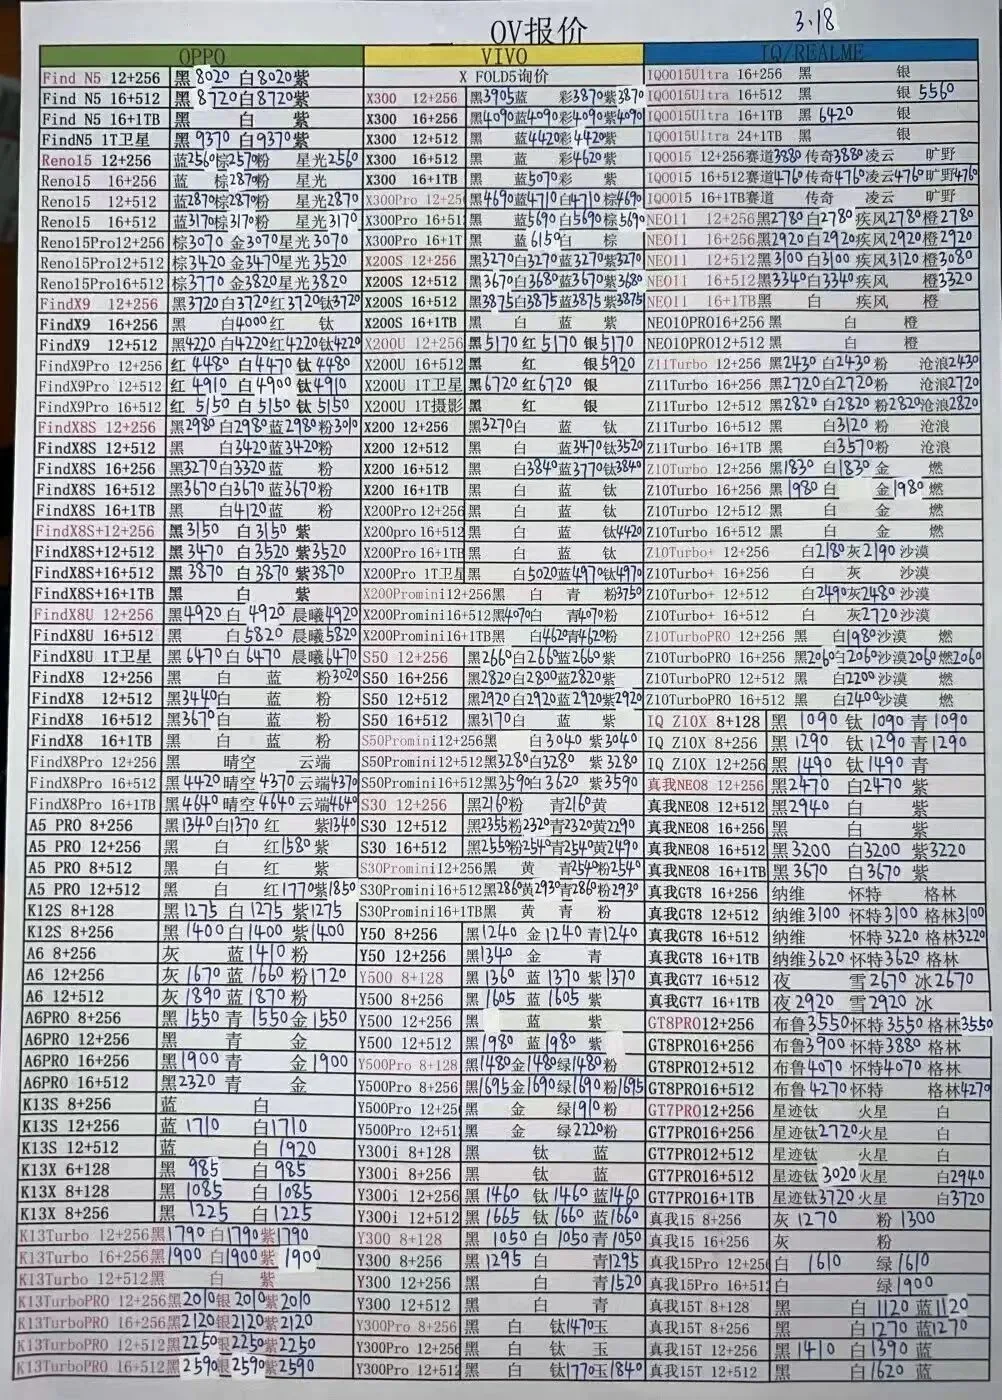 3.18
OV报价
OPPO VIVO IQ/REALME
Find N5 12+256 黑8020 白8020紫 X FOLD5询价 IQOO15Ultra 16+256 黑 银
Find N5 16+512 黑8720白8720紫 X300 12+256 黑3905蓝 彩3870紫3870 IQOO15Ultra 16+512 黑 银5560
Find N5 16+1TB 黑 白 紫 X300 16+256 黑4090蓝4090彩4090紫4090 IQOO15Ultra 16+1TB 黑6420 银
FindN5 1T卫星 黑9370白9370紫 X300 12+512 黑 蓝4420彩4420紫 IQOO15Ultra 24+1TB 黑 银
Reno15 12+256 蓝2560棕2570粉 星光2560 X300 16+512 黑 蓝 彩4620紫 IQOO15 12+256赛道3880传奇3880凌云 旷野
Reno15 16+256 蓝 棕2870粉 星光 X300 16+1TB 黑 蓝5070彩 紫 IQOO15 16+512赛道4760传奇4760凌云4760旷野4760
Reno15 12+512 蓝2870棕2870粉 星光2870 X300Pro 12+256 黑4690蓝4710白4710棕4690 IQOO15 16+1TB赛道 传奇 凌云 旷野
Reno15 16+512 蓝3170棕3170粉 星光3170 X300Pro 16+512 黑 蓝5690白5690棕5690 NEO11 12+256黑2780白2780疾风2780橙2780
Reno15Pro12+256 棕3070 金3070星光3070 X300Pro 16+1T 黑 蓝6150白 棕 NEO11 16+256黑2920白2920疾风2920橙2920
Reno15Pro12+512 棕3420 金3470星光3520 X200S 12+256 黑3270白3270蓝3270紫3270 NEO11 12+512黑3100白3100疾风3120橙3080
Reno15Pro16+512 棕3770 金3820星光3820 X200S 12+512 黑3670白3680蓝3670紫3680 NEO11 16+512黑3340白3340疾风 橙3320
FindX9 12+256 黑3720白3720红3720钛3720 X200S 16+512 黑3875白3875蓝3875紫3875 NEO11 16+1TB黑 白 疾风 橙
FindX9 16+256 黑 白4000红 钛 X200S 16+1TB 黑 白 蓝 紫 NEO10PRO16+256 黑 白 橙
FindX9 12+512 黑4220白4220红4220钛4220 X200U 12+256 黑5170红5170银5170 NEO10PRO12+512 黑 白 橙
FindX9Pro 12+256 红4480 白4470 钛4480 X200U 16+512 黑 红 银5920 Z11Turbo 12+256 黑2430白2430粉 沧浪2430
FindX9Pro 12+512 红4910 白4900钛4910 X200U 1T卫星 黑6720红6720 银 Z11Turbo 16+256 黑2720白2720粉 沧浪2720
FindX9Pro 16+512 红5150 白5150钛5150 X200U 1T摄影 黑 红 银 Z11Turbo 12+512 黑2820白2820粉2820沧浪2820
FindX8S 12+256 黑2980白2980蓝2980粉3010 X200 12+256 黑3270白 蓝 钛 Z11Turbo 16+512 黑 白3120粉 沧浪
FindX8S 12+512 黑 白3420蓝3420粉 X200 12+512 黑 白 蓝3470钛3520 Z11Turbo 16+1TB 黑 白3570粉 沧浪
FindX8S 16+256 黑3270白3320蓝 粉 X200 16+512 黑 白3840蓝3770钛3840 Z10Turbo 12+256 黑1830白1830金 燃
FindX8S 16+512 黑3670白3670蓝3670粉 X200 16+1TB 黑 白 蓝 钛 Z10Turbo 16+256 黑1980白 金1980燃
FindX8S 16+1TB 黑 白4120粉 X200Pro 12+256 黑 白 蓝 钛 Z10Turbo 12+512 黑 白 金 燃
FindX8S+12+256 黑3150 白3150 紫 X200pro 16+512 黑 白 蓝 钛4420 Z10Turbo 16+512 黑 白 金 燃
FindX8S+12+512 黑3470 白3520紫3520 X200Pro 16+1TB 黑 白 蓝 钛 Z10Turbo+ 12+256 白2180灰2190沙漠
FindX8S+16+512 黑3870 白3870紫3870 X200Pro 1T卫星 黑 白5020蓝4970钛4970 Z10Turbo+ 16+256 白 灰 沙漠
FindX8S+16+1TB 黑 白 紫 X200Promini12+256黑 白 青 粉3750 Z10Turbo+ 12+512 白2490灰2480沙漠
FindX8U 12+256 黑4920白4920晨曦4920 X200Promini16+512黑4070白 青4070粉 Z10Turbo+ 16+512 白 灰2720沙漠
FindX8U 16+512 黑 白5820晨曦5820 X200Promini16+1TB黑 白4620青4620粉 Z10TurboPRO 12+256 黑 白1980沙漠 燃
FindX8U 1T卫星 黑6470白6470 晨曦6470 S50 12+256 黑2660白2660蓝2660紫 Z10TurboPRO 16+256 黑2060白2060沙漠2060燃2060
FindX8 12+256 黑 白 蓝 粉3020 S50 16+256 黑2820白2800蓝2820紫 Z10TurboPRO 12+512 黑 白2200沙漠 燃
FindX8 12+512 黑3440白 蓝 粉 S50 12+512 黑2920白2920蓝2920紫2920 Z10TurboPRO 16+512 黑 白2400沙漠 燃
FindX8 16+512 黑3670白 蓝 粉 S50 16+512 黑3170白 蓝 紫 IQ Z10X 8+128 黑1090 钛1090青1090
FindX8 16+1TB 黑 白 蓝 粉 S50Promini12+256黑 白3040紫3040 IQ Z10X 8+256 黑1290 钛1290青1290
FindX8Pro 12+256 黑 晴空 云端 S50Promini12+512黑3280白3280 紫3280 IQ Z10X 12+256 黑1490 钛1490青
FindX8Pro 16+512 黑4420晴空4370云端4370 S50Promini16+512黑3590白3620紫3590 真我NEO8 12+256 黑2470 白2470紫
FindX8Pro 16+1TB 黑4640晴空4640云端4640 S30 12+256 黑2160粉 青2160黄 真我NEO8 12+512 黑2940白 紫
A5 PRO 8+256 黑1340白1370红 紫1340 S30 12+512 黑2355粉2320青2320黄2290 真我NEO8 16+256 黑 白 紫
A5 PRO 12+256 黑 白 红1580紫 S30 16+512 黑2550粉2540青2540黄2490 真我NEO8 16+512 黑3200 白3200紫3220
A5 PRO 8+512 黑 白 红 紫 S30Promini12+256黑 黄 青2540粉2540 真我NEO8 16+1TB 黑3670 白3670紫
A5 PRO 12+512 黑 白 红1770紫1850 S30Promini16+512黑2860黄2930青2860粉2930 真我GT8 16+256 纳维 怀特 格林
K12S 8+128 黑1275 白1275紫1275 S30Promini16+1TB黑 黄 青 粉 真我GT8 12+512 纳维3100怀特3100格林3100
K12S 8+256 黑1400白1400紫1400 Y50 8+256 黑1240 金1240青1240 真我GT8 16+512 纳维 怀特3220格林3220
A6 8+256 灰 蓝1410粉 Y50 12+256 黑1340 金 青 真我GT8 16+1TB 纳维3620怀特3620格林
A6 12+256 灰1670蓝1660粉1720 Y500 8+128 黑1360蓝1370紫1370 真我GT7 16+512 夜 雪2670冰2670
A6 12+512 灰1890蓝1870粉 Y500 8+256 黑1605蓝1605紫 真我GT7 16+1TB 夜2920 雪2920冰
A6PRO 8+256 黑1550青1550金1550 Y500 12+256 黑 蓝 紫 GT8PRO12+256 布鲁3550怀特3550格林3550
A6PRO 12+256 黑 青 金 Y500 12+512 黑1980蓝1980紫 GT8PRO16+256 布鲁3900怀特3880格林
A6PRO 16+256 黑1900青 金1900 Y500Pro 8+128 黑1480金1480绿1480粉 GT8PRO12+512 布鲁4070怀特4070格林
A6PRO 16+512 黑2320青 金 Y500Pro 8+256 黑1695金1690绿1690粉1695 GT8PRO16+512 布鲁4270怀特 格林4270
K13S 8+256 蓝 白 Y500Pro 12+256 黑 金 绿1910粉 GT7PRO12+256 星迹钛 火星 白
K13S 12+256 蓝1710 白1710 Y500Pro 12+512 黑 金 绿2220粉 GT7PRO16+256 星迹钛2720火星 白
K13S 12+512 蓝 白1920 Y300i 8+128 黑 钛 蓝 GT7PRO12+512 星迹钛 火星 白
K13X 6+128 黑985 白985 Y300i 8+256 黑 钛 蓝 GT7PRO16+512 星迹钛3020火星 白2940
K13X 8+128 黑1085 白1085 Y300i 12+256 黑1460 钛1460蓝1460 GT7PRO16+1TB 星迹钛3720火星 白3720
K13X 8+256 黑1225 白1225 Y300i 12+512 黑1665 钛1660蓝1660 真我15 8+256 灰1270 粉1300
K13Turbo 12+256黑1790白1790紫1790 Y300 8+128 黑1050白1050青1050 真我15 16+256 灰 粉
K13Turbo 16+256黑1900白1900紫1900 Y300 8+256 黑1295 白 青1295 真我15Pro 12+256 白1610 绿1610
K13Turbo 12+512黑 白 紫 Y300 12+256 黑 白 青1520 真我15Pro 16+512 白 绿1900
K13TurboPRO 12+256黑2010银2010紫2010 Y300 12+512 黑 白 青 真我15T 8+128 黑 白1120蓝1120
K13TurboPRO 16+256黑2120银2120紫2120 Y300Pro 8+256 黑 白 钛1470玉 真我15T 8+256 黑 白1270蓝1270
K13TurboPRO 12+512黑2250银2250紫2250 Y300Pro 12+256 黑 白 钛 玉 真我15T 12+256 黑1410白1390蓝
K13TurboPRO 16+512黑2590银2590紫2590 Y300Pro 12+512 黑 白 钛1770玉1840 真我15T 12+512 黑 白1620蓝